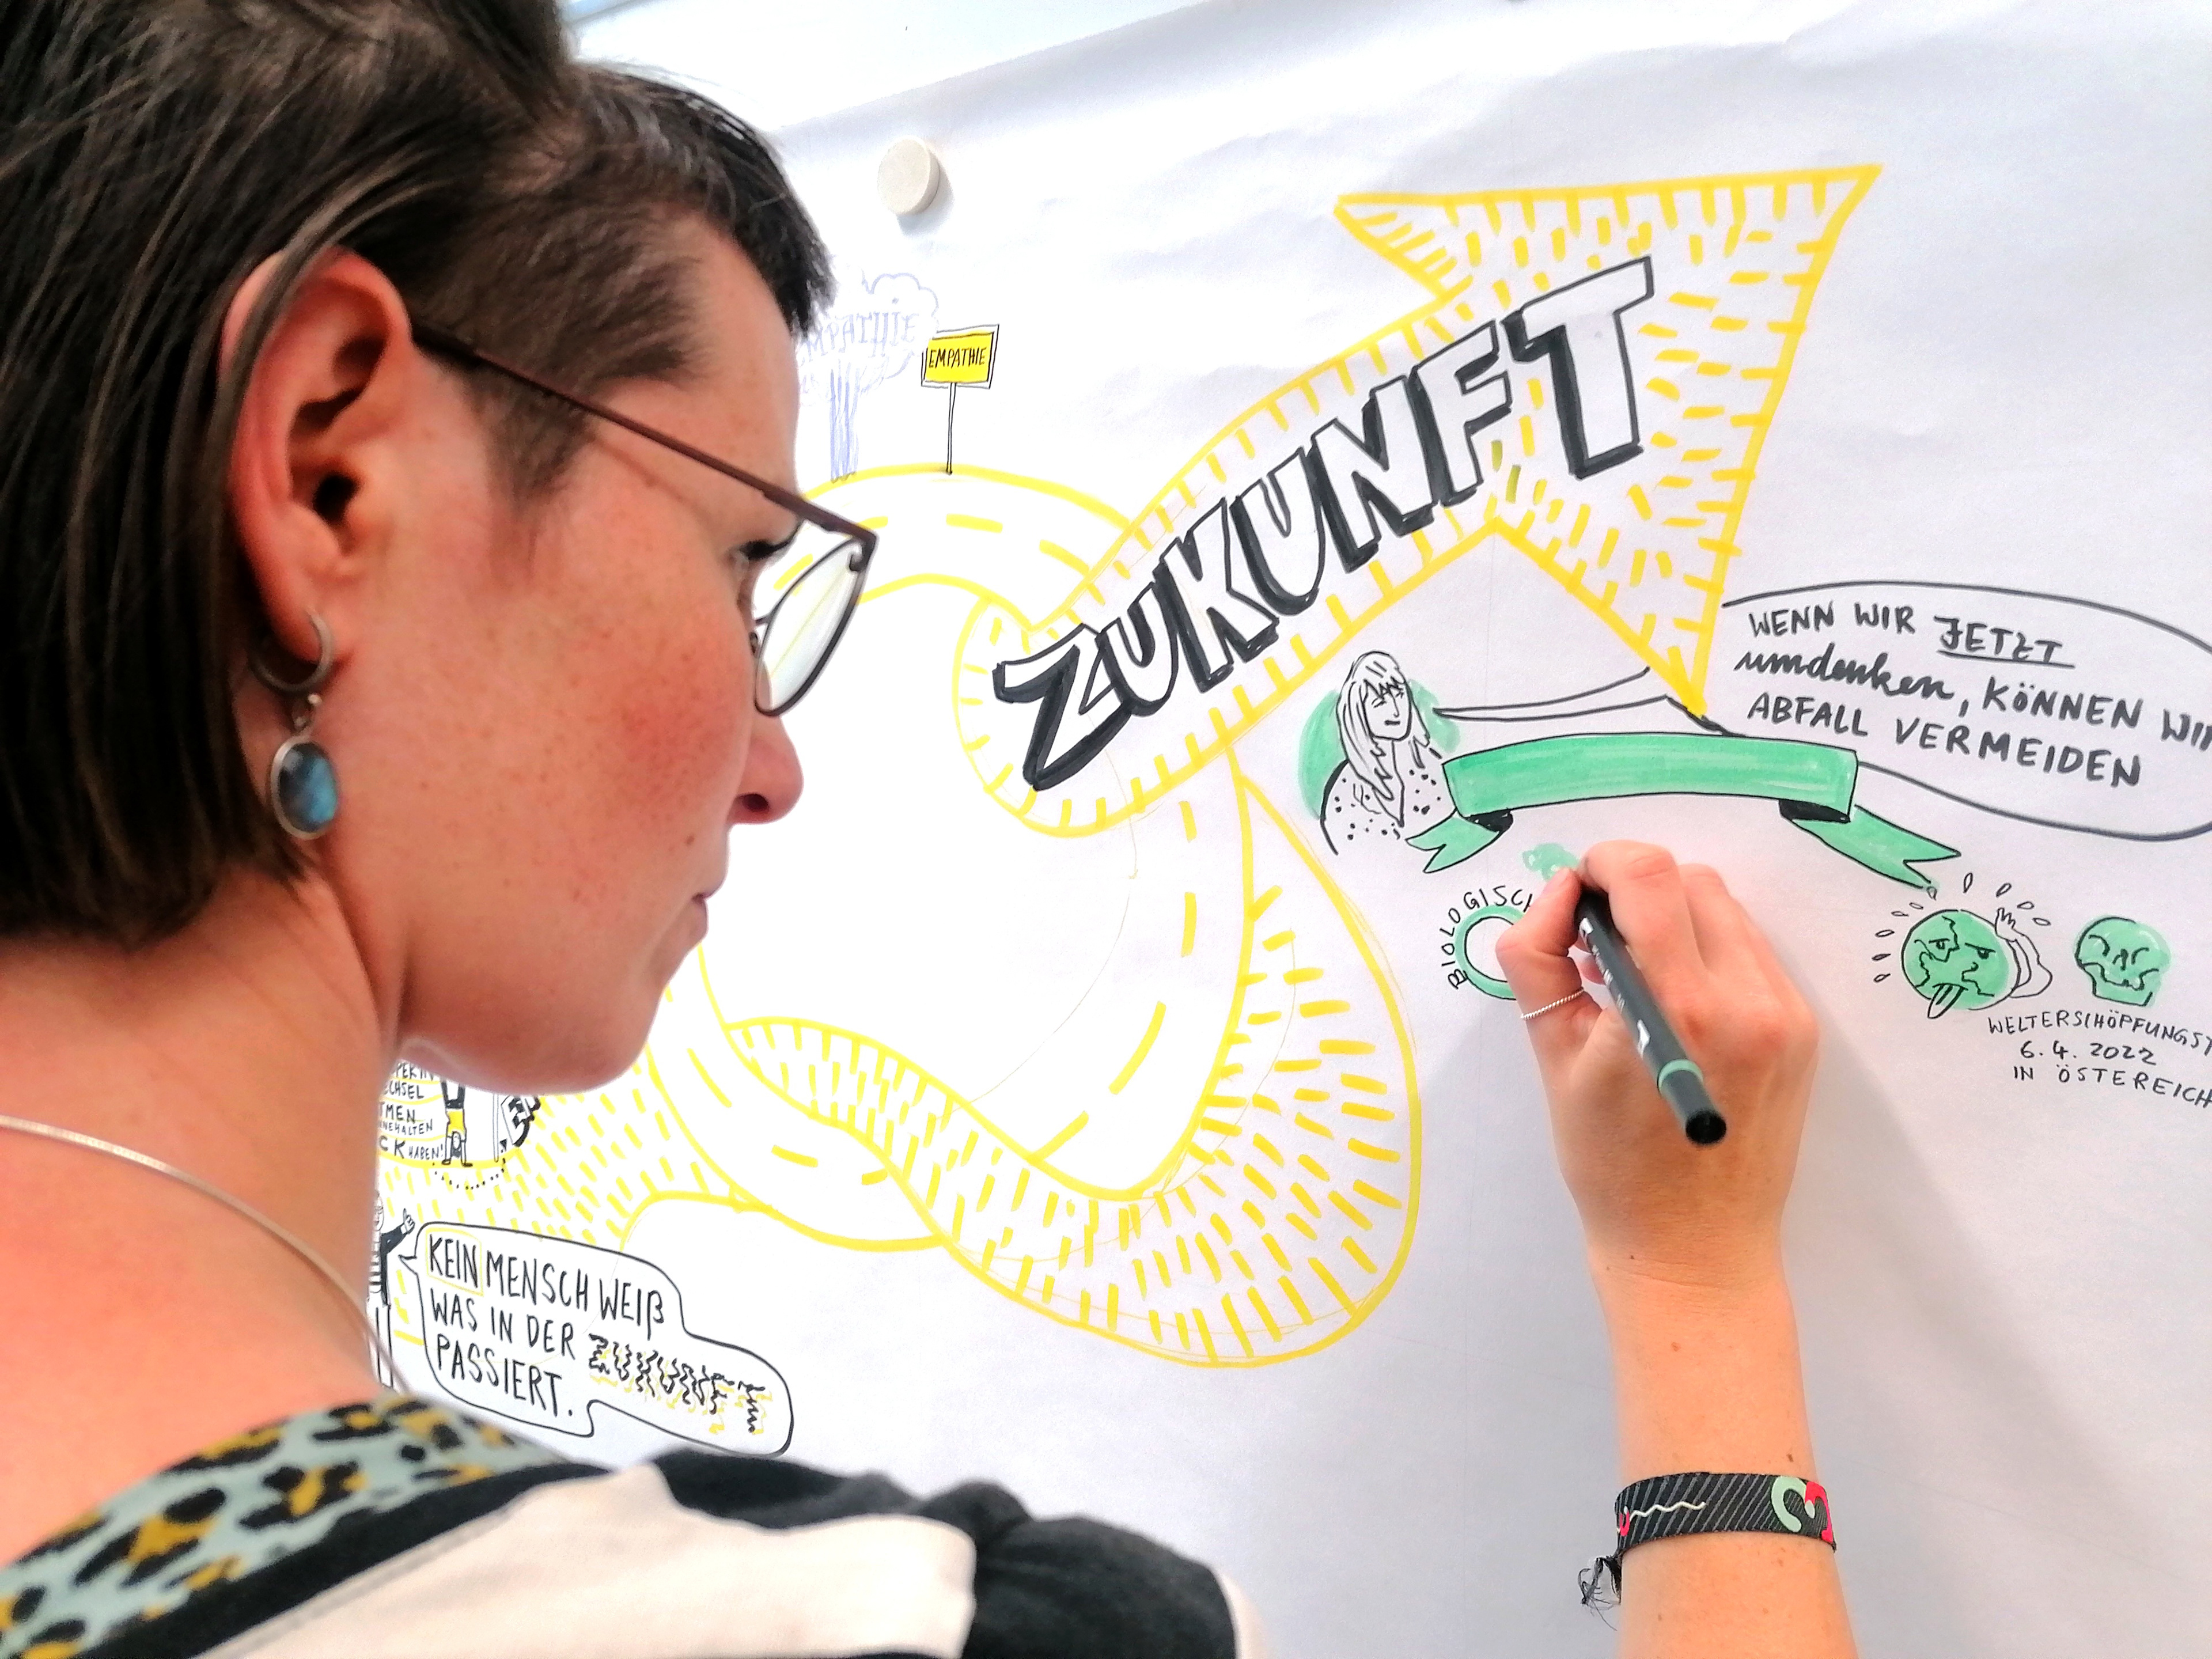 EMPATHIE
EMPATHIE
ZUKUNFT
WENN WIR JETZT
umdenken, KÖNNEN WIR
ABFALL VERMEIDEN
BIOLOGISCH
WELTERSCHÖPFUNGST
6.4.2022
IN ÖSTEREICH
HABEN!
KEIN MENSCH WEIẞ
WAS IN DER ZUKUNFT
PASSIERT.